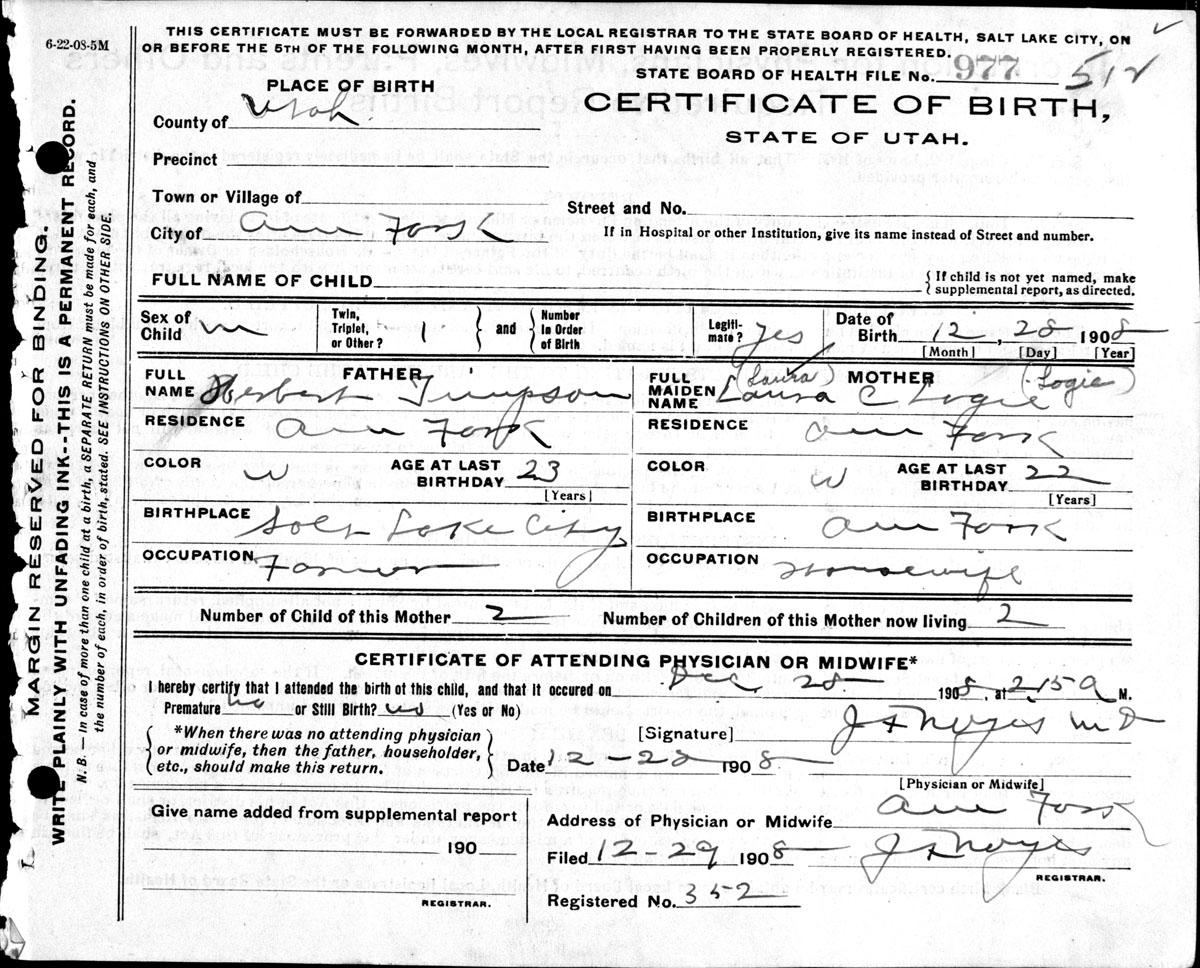 6-22-08-5M
THIS CERTIFICATE MUST BE FORWARDED BY THE LOCAL REGISTRAR TO THE STATE BOARD OF HEALTH, SALT LAKE CITY, ON
OR BEFORE THE 5TH OF THE FOLLOWING MONTH, AFTER FIRST HAVING BEEN PROPERLY REGISTERED.
STATE BOARD OF HEALTH FILE No. 977 512
PLACE OF BIRTH
CERTIFICATE OF BIRTH,
STATE OF UTAH.
County of Utah
Precinct
Town or Village of
Street and No.
City of Am Fork
If in Hospital or other Institution, give its name instead of Street and number.
FULL NAME OF CHILD
{If child is not yet named, make
supplemental report, as directed.
Sex of Child m Twin, Triplet, or Other? 1 and Number In Order of Birth Legiti-mate? Yes Date of Birth 12, 28 1908
[Month] [Day] [Year]
FATHER
FULL NAME Herbert Timpson
MOTHER
(Laura) (Logie)
FULL MAIDEN NAME Laura C Logie
RESIDENCE Am Fork RESIDENCE Am Fork
COLOR W AGE AT LAST BIRTHDAY 23 [Years] COLOR W AGE AT LAST BIRTHDAY 22 [Years]
BIRTHPLACE Salt Lake City BIRTHPLACE Am Fork
OCCUPATION Farmer OCCUPATION Housewife
Number of Child of this Mother 2 Number of Children of this Mother now living 2
CERTIFICATE OF ATTENDING PHYSICIAN OR MIDWIFE*
I hereby certify that I attended the birth ot this child, and that it occured on Dec 28 1908, at 2:15 a M.
Premature no or Still Birth? no (Yes or No)
*When there was no attending physician
or midwife, then the father, householder,
etc., should make this return.
[Signature] J F Noyes M D
Date 12-28 1908
[Physician or Midwife]
Give name added from supplemental report
190
REGISTRAR.
Address of Physician or Midwife Am Fork
Filed 12-29 1908 J F Noyes
REGISTRAR.
Registered No. 352
MARGIN RESERVED FOR BINDING.
WRITE PLAINLY WITH UNFADING INK--THIS IS A PERMANENT RECORD.
N. B.—In case of more than one child at a birth, a SEPARATE RETURN must be made for each, and
the number of each, in order of birth, stated. SEE INSTRUCTIONS ON OTHER SIDE.